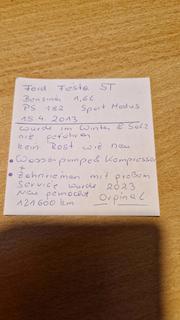 Ford Festa ST
Benziner 1,6L
PS 182 Sport Modus
15.4.2013
wurde im Winter & Salz
nie gefahren
kein Rost wie neu
• Wasserpumpe & Kompressor
+
• Zahnriemen mit großem
Service wurde 2023
Neu gemacht Orginal
121600 km